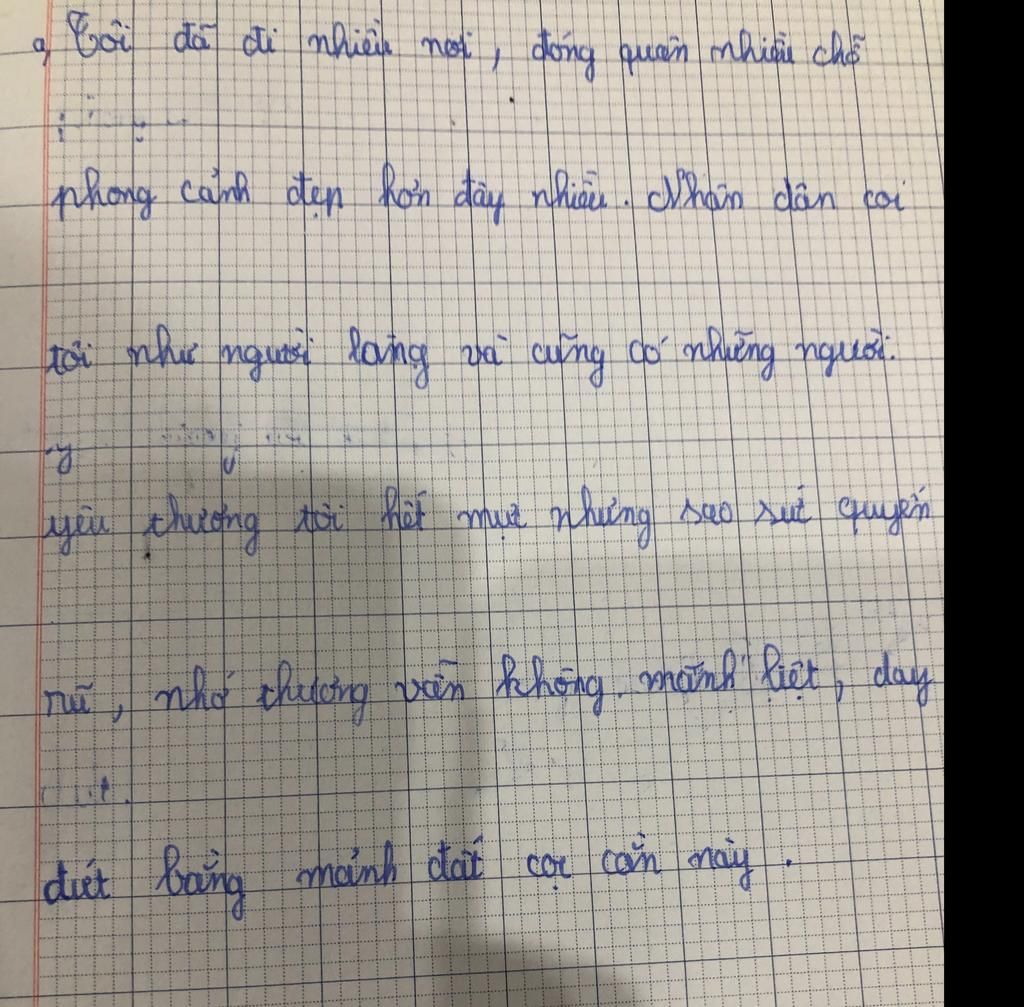 a, Tôi đã đi nhiều nơi, đóng quân nhiều chỗ
phong cảnh đẹp hơn đây nhiều. Nhân dân coi
tôi như người làng và cũng có những người.
yêu thương tôi hết mực nhưng sao sức quyến
rũ, nhớ thương vẫn không mãnh liệt, day
dứt bằng mảnh đất cọc cằn này.